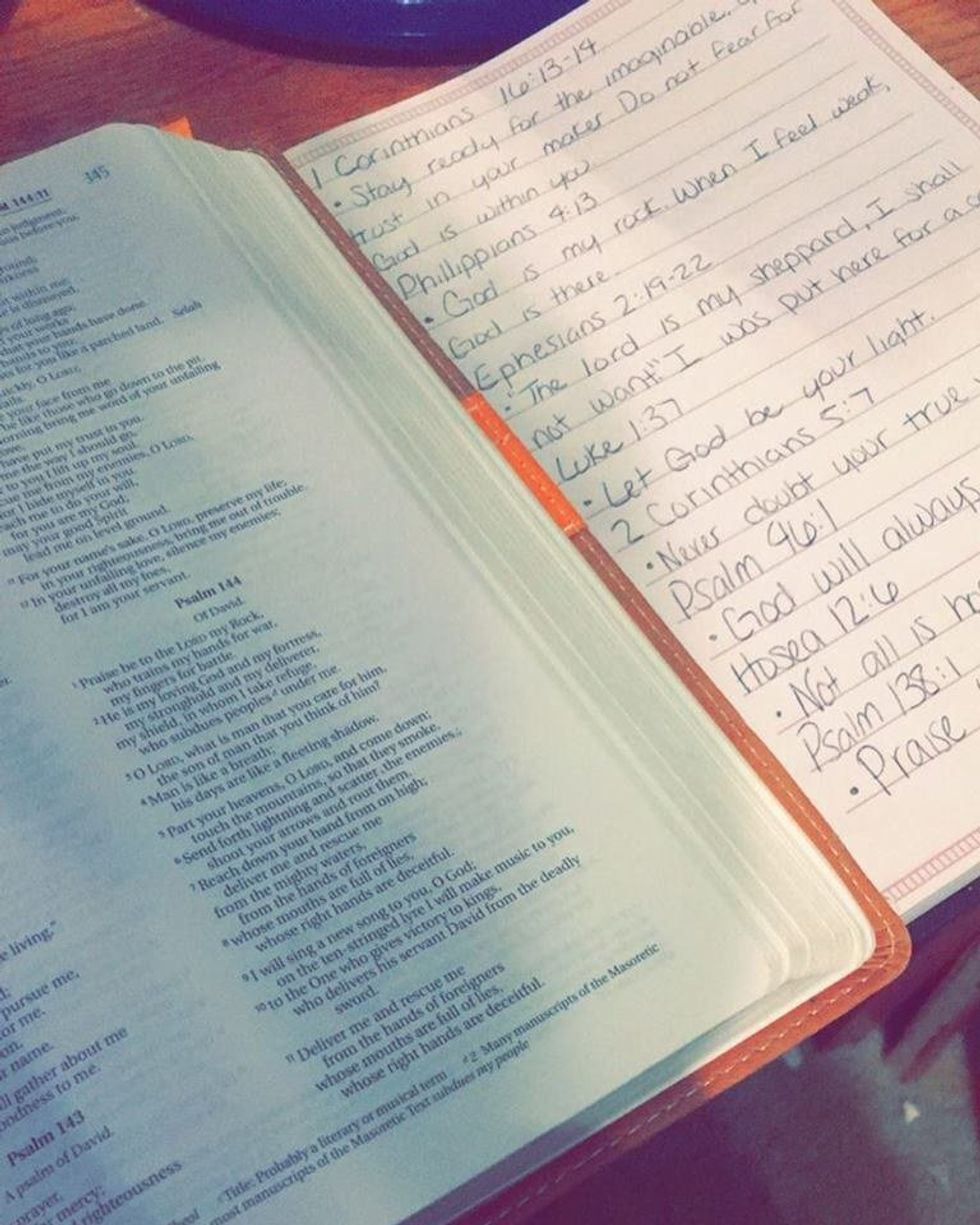 144:11 345
judgment,
before you.
ground;
darkness
within me;
is dismayed.
of long ago;
your works
what your hands have done.
hands to you;
for you like a parched land. Selah
quickly, O LORD;
fails.
your face from me
be like those who go down to the pit.
morning bring me word of your unfailing
love,
have put my trust in you.
me the way I should go,
to you I lift up my soul.
me from my enemies, O LORD,
for I hide myself in you.
Teach me to do your will,
for you are my God;
may your good Spirit
lead me on level ground.
11 For your name's sake, O LORD, preserve my life;
in your righteousness, bring me out of trouble.
12 In your unfailing love, silence my enemies;
destroy all my foes,
for I am your servant.
Psalm 144
Of David.
1 Praise be to the LORD my Rock,
who trains my hands for war,
my fingers for battle.
2 He is my loving God and my fortress,
my stronghold and my deliverer,
my shield, in whom I take refuge,
who subdues peoples d under me.
3 O LORD, what is man that you care for him,
the son of man that you think of him?
4 Man is like a breath;
his days are like a fleeting shadow.
5 Part your heavens, O LORD, and come down;
touch the mountains, so that they smoke.
6 Send forth lightning and scatter the enemies;
shoot your arrows and rout them.
7 Reach down your hand from on high;
deliver me and rescue me
from the mighty waters,
from the hands of foreigners
8 whose mouths are full of lies,
whose right hands are deceitful.
9 I will sing a new song to you, O God;
on the ten-stringed lyre I will make music to you,
10 to the One who gives victory to kings,
who delivers his servant David from the deadly
sword.
11 Deliver me and rescue me
from the hands of foreigners
whose mouths are full of lies,
whose right hands are deceitful.
living."
pursue me,
for me.
name.
will gather about me
goodness to me.
Psalm 143
A psalm of David.
prayer,
for mercy;
righteousness
Title: Probably a literary or musical term d 2 Many manuscripts of the Masoretic
most manuscripts of the Masoretic Text subdues my people
1 Corinthians 16:13-14
• Stay ready for the imaginable.
trust in your maker Do not fear for
God is within you
Phillippians 4:13
• God is my rock. When I feel weak,
God is there.
Ephesians 2:19-22
• "The lord is my sheppard, I shall
not want" I was put here for a
Luke 1:37
• Let God be your light.
2 Corinthians 5:7
• Never doubt your true
Psalm 46:1
• God will always
Hosea 12:6
• Not all is
Psalm 138:1
• Praise